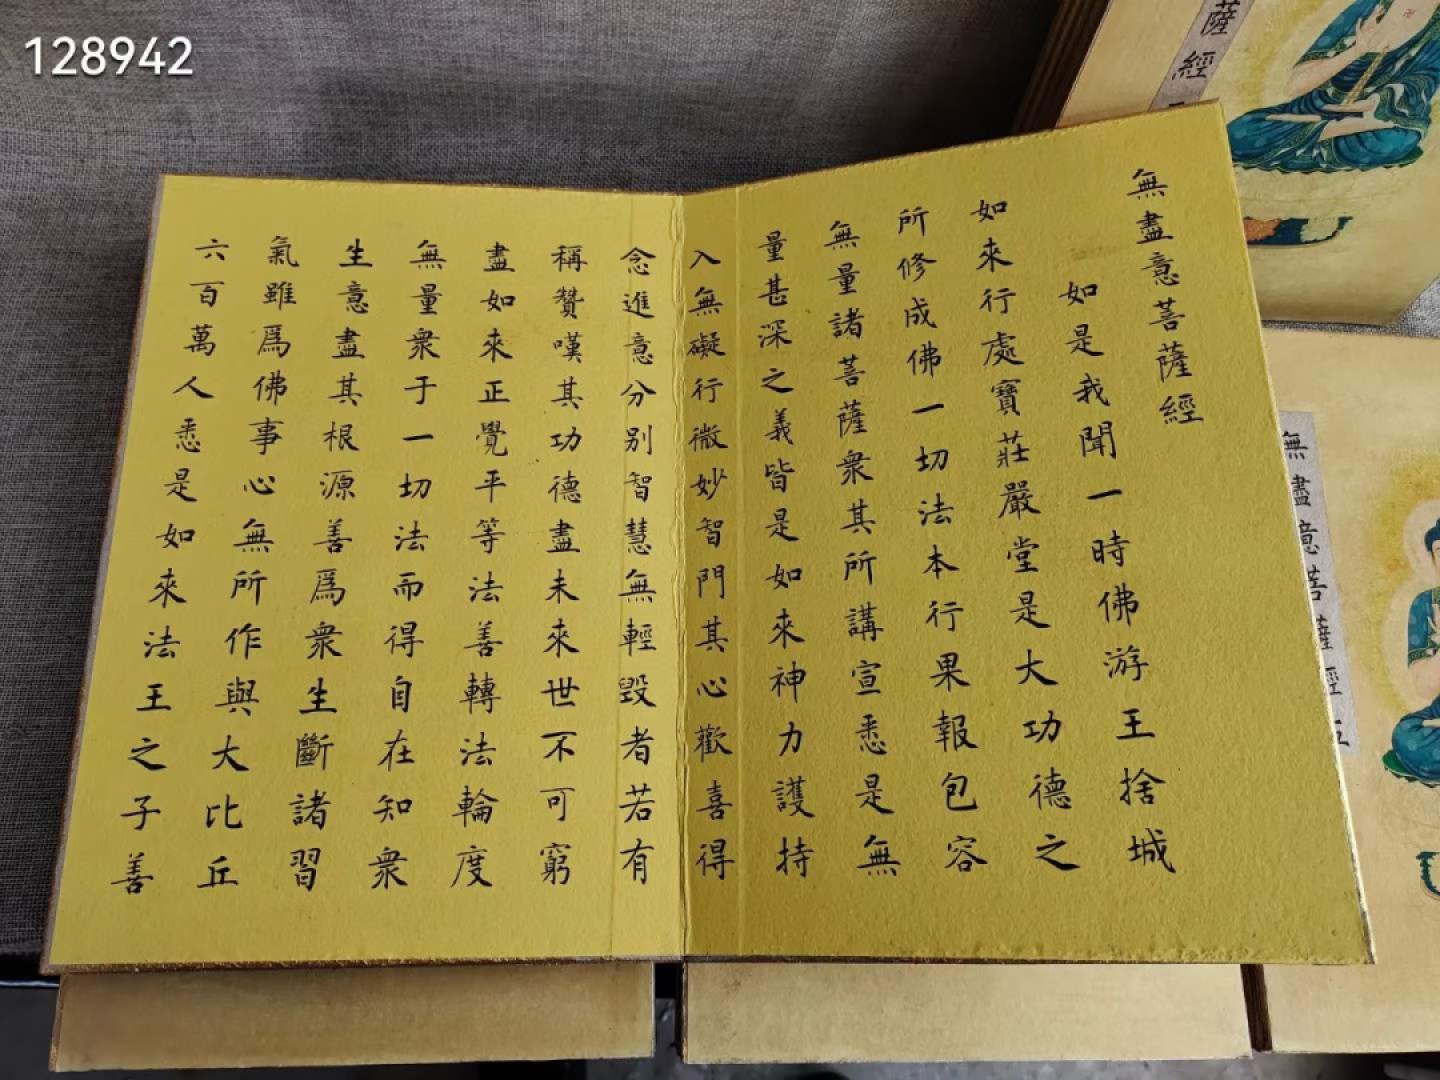 128942
無盡意菩薩經
如是我聞一時佛游王捨城
如來行處寶莊嚴堂是大功德之
所修成佛一切法本行果報包容
無量諸菩薩衆其所講宣悉是無
量甚深之義皆是如來神力護持
入無礙行微妙智門其心歡喜得
念進意分别智慧無輕毀者若有
稱贊嘆其功德盡未來世不可窮
盡如來正覺平等法善轉法輪度
無量衆于一切法而得自在知衆
生意盡其根源善爲衆生斷諸習
氣雖爲佛事心無所作與大比丘
六百萬人悉是如來法王之子善
薩經
無盡意菩薩經五